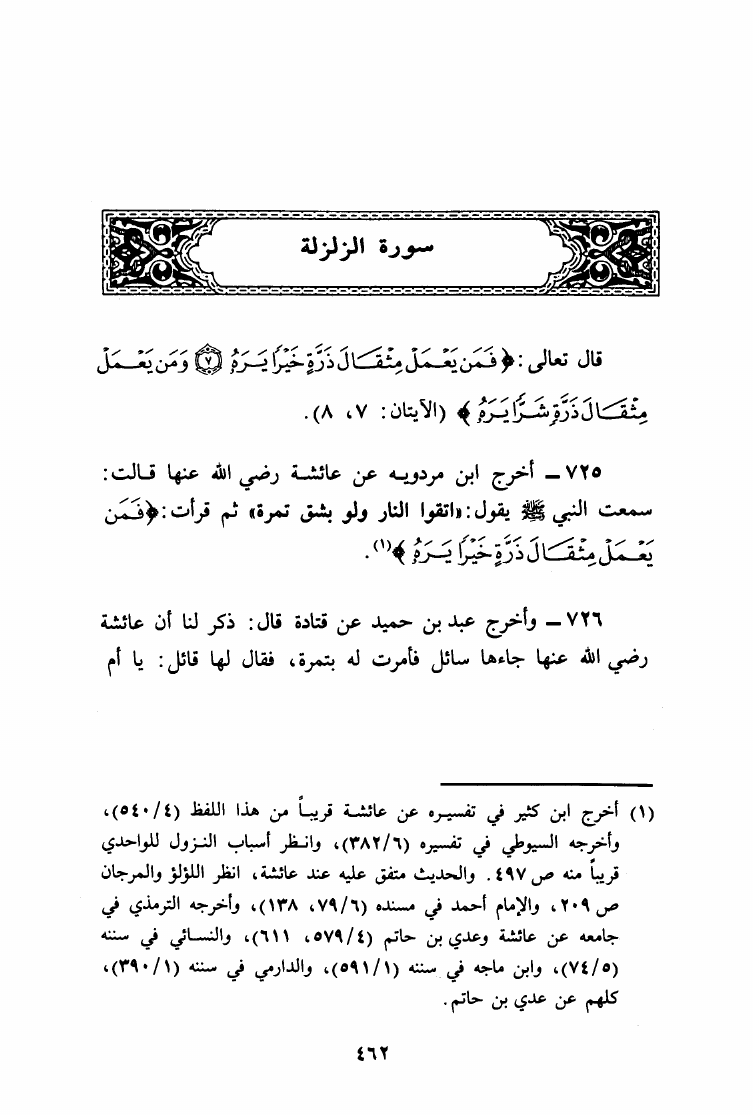 سورة الزلزلة
قال تعالى: ﴿فَمَن يَعْمَلْ مِثْقَالَ ذَرَّةٍ خَيْرًا يَرَهُ ۝٧ وَمَن يَعْمَلْ
مِثْقَالَ ذَرَّةٍ شَرًّا يَرَهُ﴾ (الآيتان: ٧، ٨).
٧٢٥ – أخرج ابن مردويه عن عائشة رضي الله عنها قالت:
سمعت النبي ﷺ يقول: «اتقوا النار ولو بشق تمرة» ثم قرأت: ﴿فَمَن
يَعْمَلْ مِثْقَالَ ذَرَّةٍ خَيْرًا يَرَهُ﴾(١).
٧٢٦ – وأخرج عبد بن حميد عن قتادة قال: ذكر لنا أن عائشة
رضي الله عنها جاءها سائل فأمرت له بتمرة، فقال لها قائل: يا أم
(١) أخرج ابن كثير في تفسيره عن عائشة قريباً من هذا اللفظ (٥٤٠/٤)،
وأخرجه السيوطي في تفسيره (٣٨٢/٦)، وانظر أسباب النزول للواحدي
قريباً منه ص ٤٩٧. والحديث متفق عليه عند عائشة، انظر اللؤلؤ والمرجان
ص ٢٠٩، والإمام أحمد في مسنده (٧٩/٦، ١٣٨)، وأخرجه الترمذي في
جامعه عن عائشة وعدي بن حاتم (٥٧٩/٤، ٦١١)، والنسائي في سننه
(٧٤/٥)، وابن ماجه في سننه (٥٩١/١)، والدارمي في سننه (٣٩٠/١)،
كلهم عن عدي بن حاتم.
٤٦٢